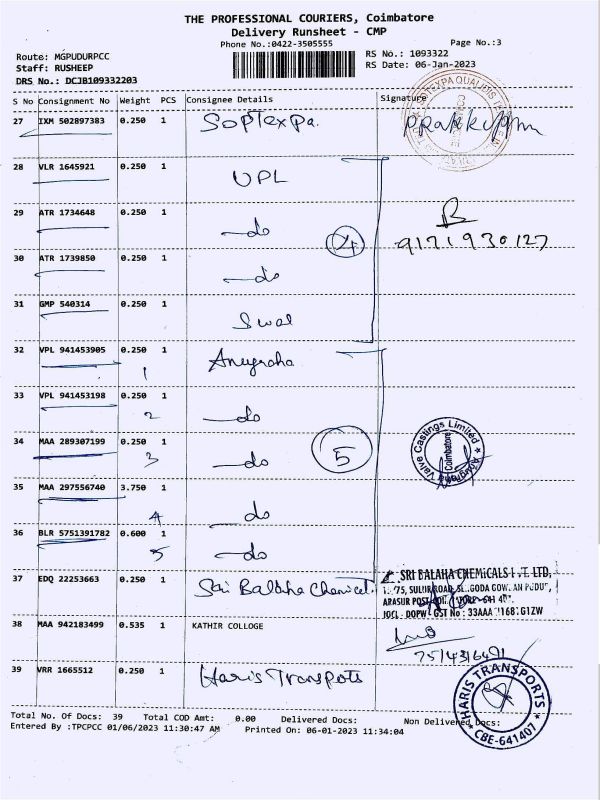 THE PROFESSIONAL COURIERS, Coimbatore
Delivery Runsheet - CMP
Phone No.:0422-3505555 Page No.:3
Route: MGPUDURPCC RS No.: 1093322
Staff: RUSHEEP RS Date: 06-Jan-2023
DRS No.: DCJB109332203
S No Consignment No Weight PCS Consignee Details Signature
27 IXM 502897383 0.250 1 Soplexpa.
28 VLR 1645921 0.250 1 UPL
29 ATR 1734648 0.250 1 —do
4 9171930127
30 ATR 1739850 0.250 1 —do
31 GMP 540314 0.250 1 Swal
32 VPL 941453905 0.250 1 Anugraha
1
33 VPL 941453198 0.250 1 —do
2
34 MAA 289307199 0.250 1 —do
3 5
Valve Castings Limited
Coimbatore
35 MAA 297556740 3.750 1 —do
4
36 BLR 5751391782 0.600 1 —do
5
37 EDQ 22253663 0.250 1 Sai Balaha Chemicel.
SRI BALAHA CHEMICALS LTD,
ARASUR POST
38 MAA 942183499 0.535 1 KATHIR COLLOGE
39 VRR 1665512 0.250 1 Haris Transpots
HARIS TRANSPORTS
CBE-641407
Total No. Of Docs: 39 Total COD Amt: 0.00 Delivered Docs: Non Delivered Docs:
Entered By :TPCPCC 01/06/2023 11:30:47 AM Printed On: 06-01-2023 11:34:04